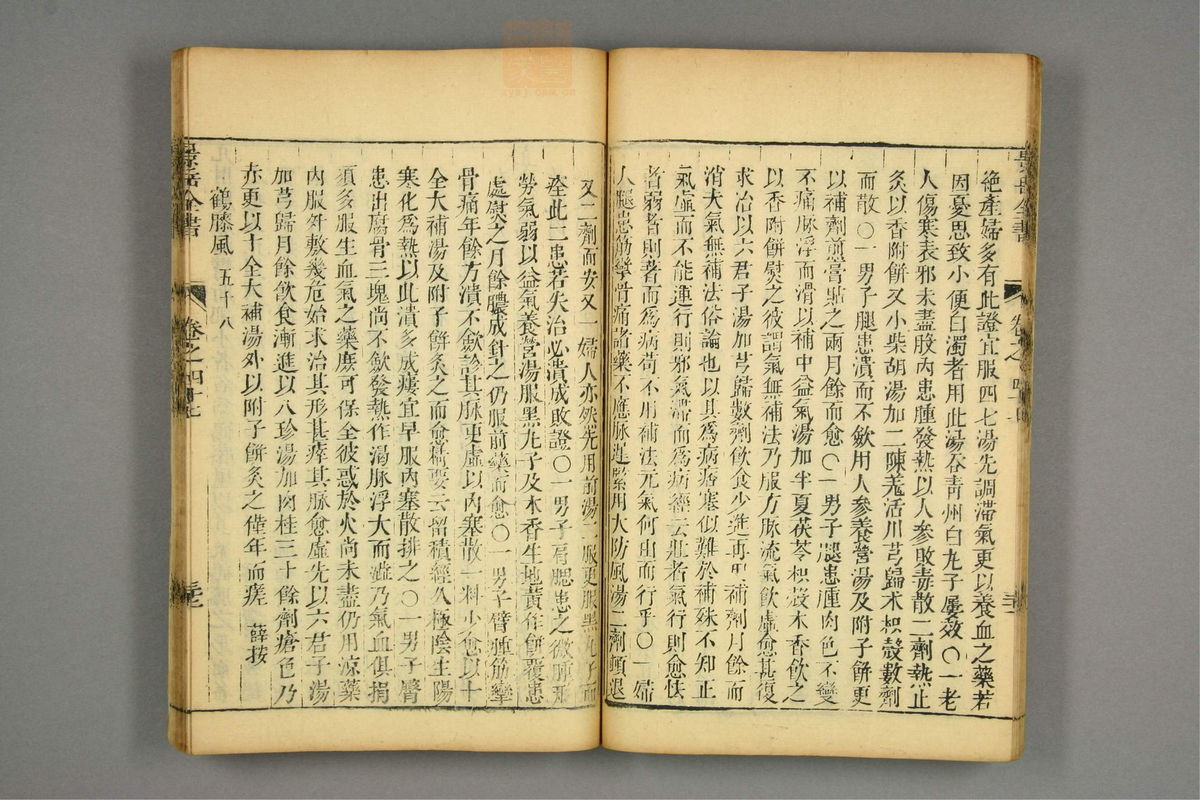 絶產婦多有此證宜服四七湯先調滯氣更以養血之藥若
因憂思致小便白濁者用此湯吞青州白丸子屢效〇一老
人傷寒表邪未盡股內患腫發熱以人參敗毒散二劑熱止
灸以香附餅又小柴胡湯加二陳羗活川芎歸术枳殼數劑
而散〇一男子腿患潰而不斂用人參養營湯及附子餅更
以補劑煎膏貼之兩月餘而愈〇一男子腿患腫肉色不變
不痛脉浮而滑以補中益氣湯加半夏茯苓枳殼木香飲之
以香附餅熨之彼謂氣無補法乃服方脉流氣飲虛愈甚復
求治以六君子湯加芎歸數劑飲食少進再用補劑月餘而
消夫氣無補法俗論也以其為病痞塞似難於補殊不知正
氣虛而不能運行則邪氣滯而為病經云壯者氣行則愈怯
者弱者則著而為病苟不用補法元氣何由而行乎〇一婦
人腿患筋攣骨痛諸藥不應脉遲緊用大防風湯二劑頓退
又二劑而安又一婦人亦然先用前湯二服更服黑丸子而
痊此二患若失治必潰成敗證〇一男子肩腮患之微腫形
勞氣弱以益氣養營湯服黑丸子及木香生地黃作餅覆患
處熨之月餘膿成針之仍服前藥而愈〇一男子臂腫筋攣
骨痛年餘方潰不斂診其脉更虛以內塞散一料少愈以十
全大補湯及附子餅灸之而愈精要云留積經久極陰生陽
寒化為熱以此潰多成瘻宜早服內塞散排之〇一男子臀
患出腐骨三塊尚不斂發熱作渴脉浮大而濇乃氣血俱損
須多服生血氣之藥庶可保全彼惑於火尚未盡仍用涼藥
內服外敷幾危始求治其形甚瘁其脉愈虛先以六君子湯
加芎歸月餘飲食漸進以八珍湯加肉桂三十餘劑瘡色乃
赤更以十全大補湯外以附子餅灸之僅年而瘥　薛按
鶴膝風　五十八
景岳全書
卷之四十七